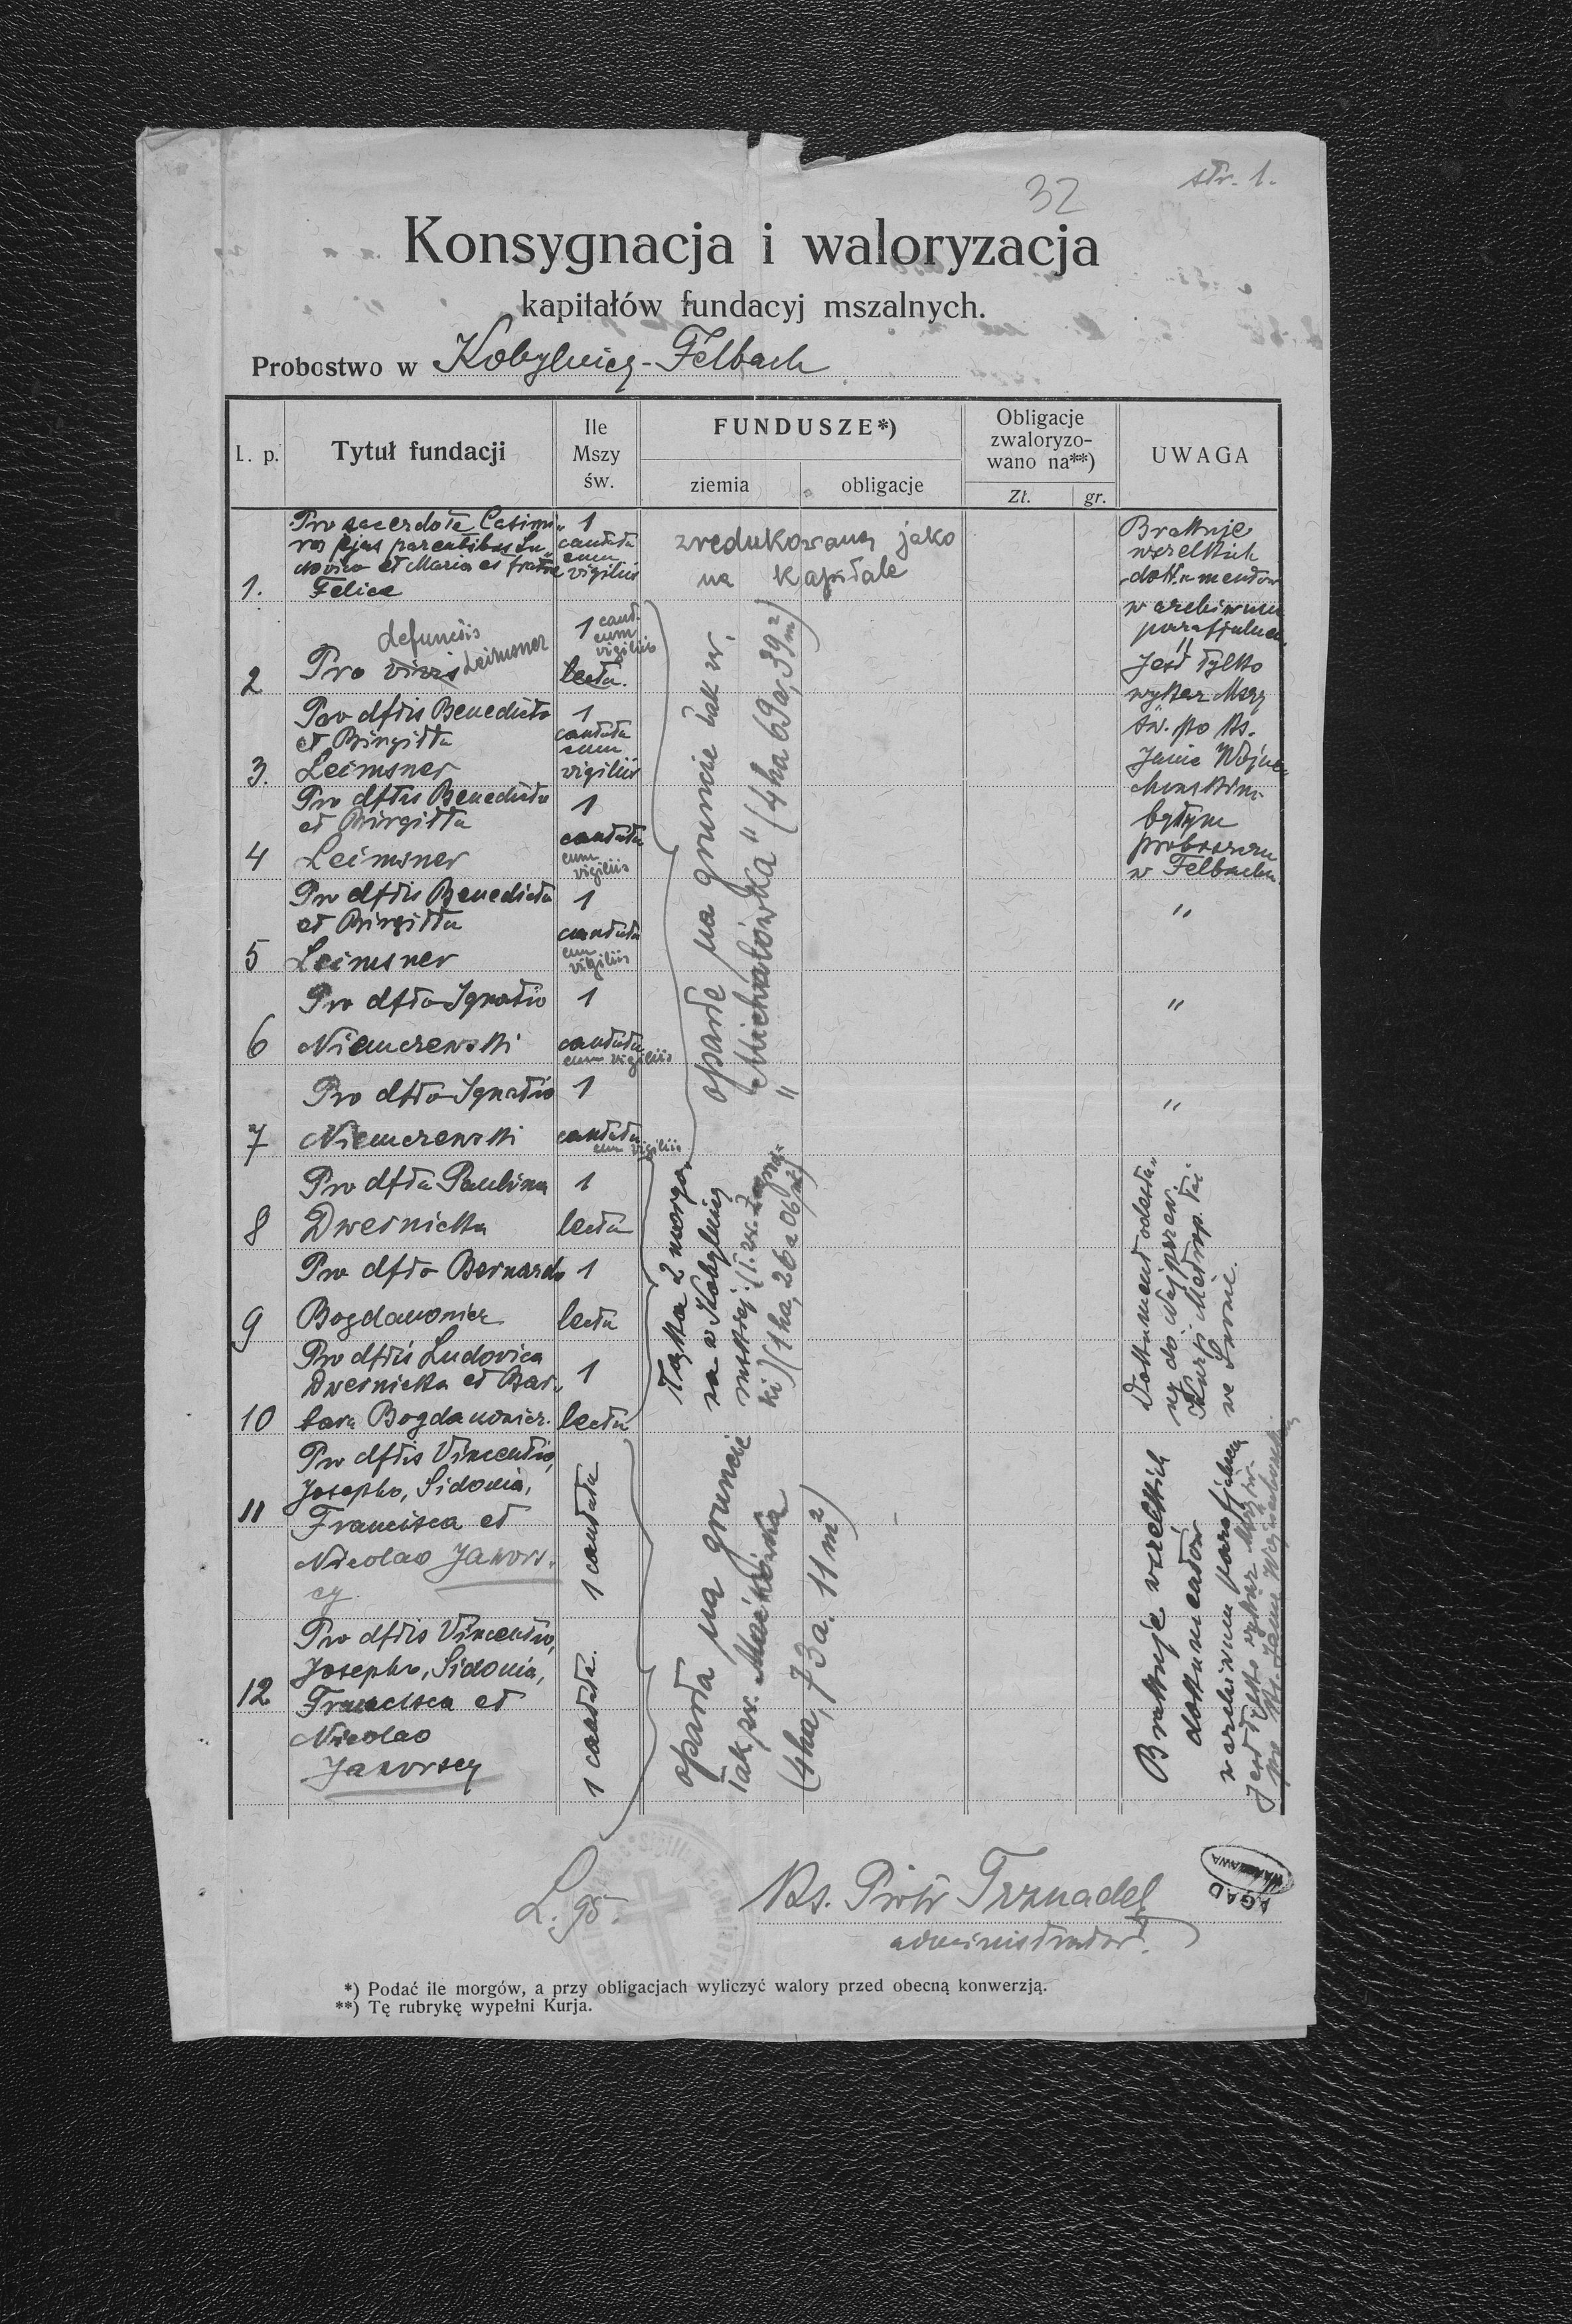 str. 1.
32
Konsygnacja i waloryzacja
kapitałów fundacyj mszalnych.
Probostwo w Kobylnicy-Felbach
L. p.
Tytuł fundacji
Ile
Mszy
św.
FUNDUSZE*)
ziemia
obligacje
Obligacje
zwaloryzo-
wano na**)
Zł.
gr.
UWAGA
1.
Pro sacerdote Casimi-
ro, ejus parentibus Lu-
dovico et Maria et fratre
Felice
1
cantata
cum
vigiliis
zredukowana jako
na kapitale
Brakuje
wszelkich
dokumentów
w archiwum
parafjalnem,
Jest tylko
wykaz Mszy
św. po ks.
Janie Wojcie-
chowskim
byłym
proboszczu
w Felbachu
2
defunctis
Pro Leimsner
1 cant.
cum
vigiliis
lecta.
3.
Pro dftis Benedicto
et Birgitta
Leimsner
1
cantata
cum
vigiliis
4
Pro dftis Benedicto
et Birgitta
Leimsner
1
cantata
cum
vigiliis
5
Pro dftis Benedicto
et Birgitta
Leimsner
1
cantata
cum
vigiliis
"
6
Pro dfto Ignatio
Niemczewski
1
cantata
cum vigiliis
"
7
Pro dfto Ignatio
Niemczewski
1
cantata
cum vigiliis
"
oparte na gruncie tak zw.
"Michałówka" (4 ha 69 a, 39 m²)
8
Pro dfta Paulina
Dwernicka
1
lecta
9
Pro dfto Bernardo
Bogdanowicz
1
lecta
10
Pro dftis Ludovica
Dwernicka et Bar-
bara Bogdanowicz.
1
lecta
Łąka 2 morgo-
wa w Kobylnicy
ruskiej (t. zw.
ki) (1 ha, 26 a 06 m²)
Dokument odesła-
ny do Najprzew.
Kurji Metrop. łac
we Lwowie.
11
Pro dftis Vincentio,
Josepho, Sidonia,
Francisca et
Nicolao Jawors-
cy
1 cantata
12
Pro dftis Vincentio,
Josepho, Sidonia,
Francisca et
Nicolao
Jaworscy
1 cantata.
oparta na gruncie
tak zw. Maćkówka
(4 ha, 73 a. 11 m²)
Brakuje wszelkich
dokumentów
w archiwum parafjalnem
jest tylko wykaz Mszy św.
po ks. Janie Wojciechowskim
L. 95.
Ks. Piotr Trznadel
administrator.
AGAD
WARSZAWA
*) Podać ile morgów, a przy obligacjach wyliczyć walory przed obecną konwerzją.
**) Tę rubrykę wypełni Kurja.